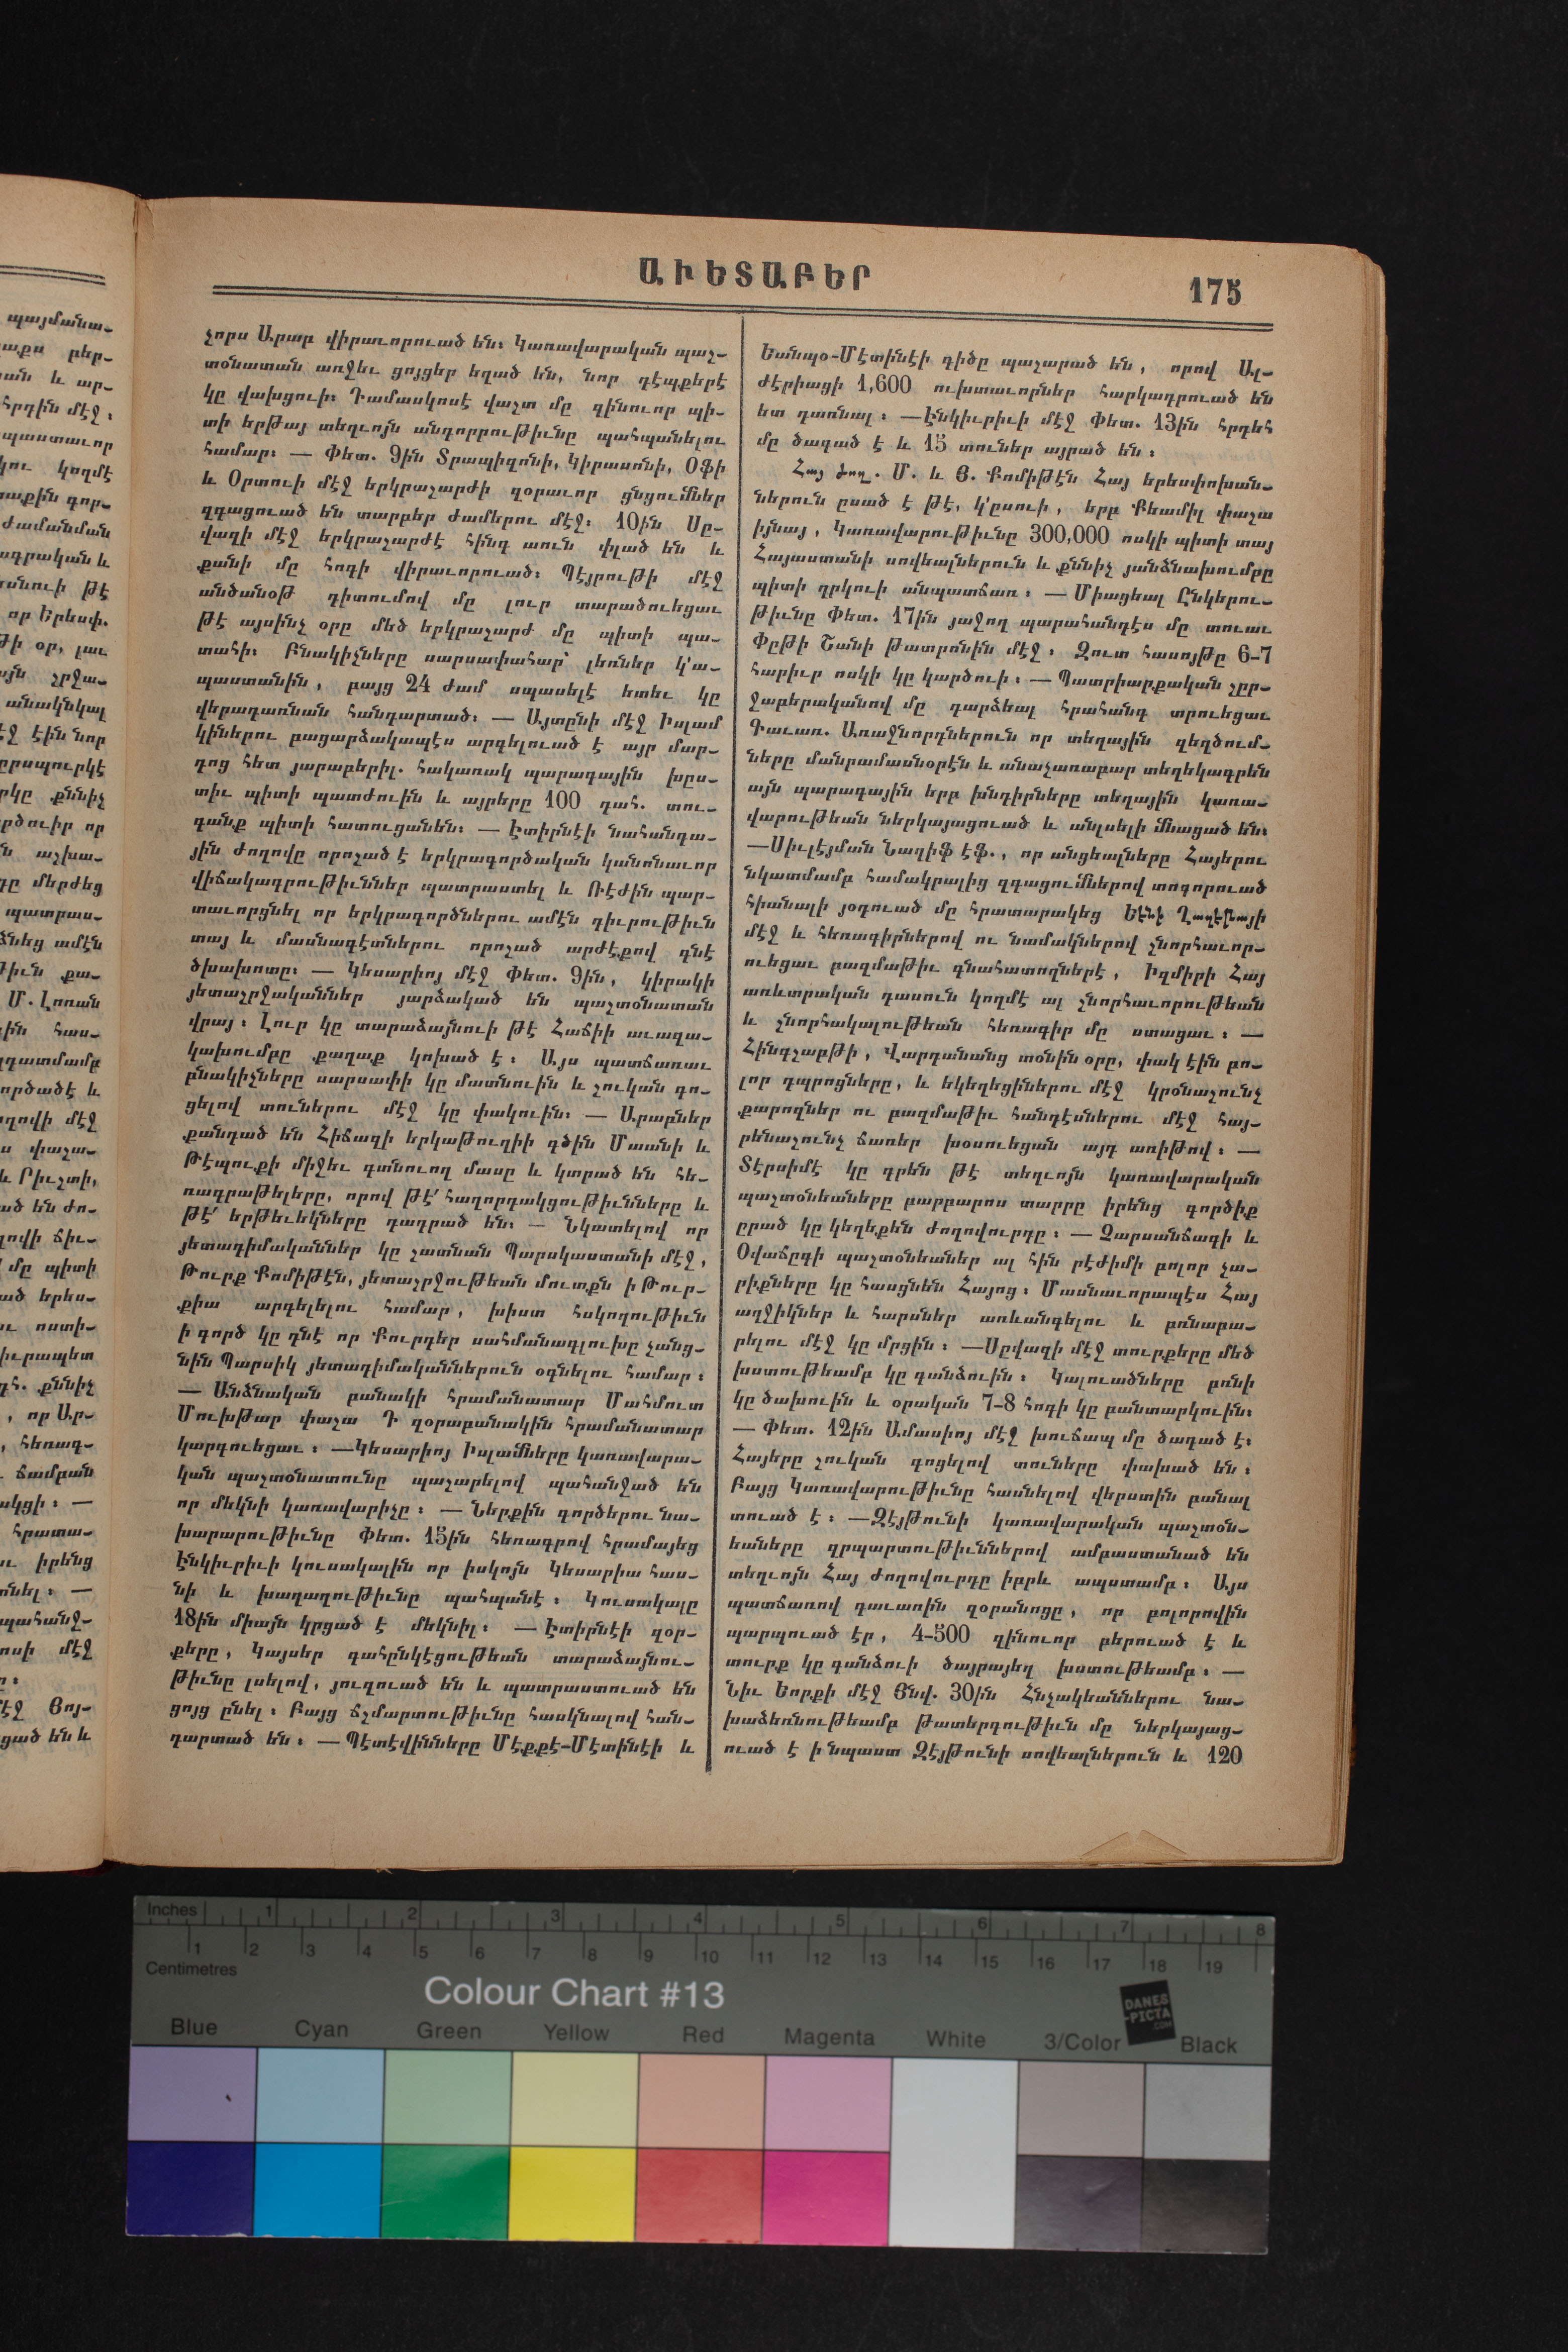 ԱՒԵՏԱԲԵՐ
175
չորս Արաբ վիրաւորուած են։ Կառավարական պաշ-
տօնատան առջեւ ցոյցեր եղած են, նոր դէպքերէ
կը վախցուի։ Դամասկոսէ վաշտ մը զինուոր պի-
տի երթայ տեղւոյն անդորրութիւնը պահպանելու
համար։ — Փետ. 9ին Տրապիզոնի, Կիրասոնի, Օֆի
և Օրտուի մէջ երկրաշարժի զօրաւոր ցնցումներ
զգացուած են տարբեր ժամերու մէջ։ 10ին Սը-
վազի մէջ երկրաշարժէ հինգ տուն փլած են և
քանի մը հոգի վիրաւորուած։ Պէյրութի մէջ
անծանօթ դիտումով մը լուր տարածուեցաւ
թէ այսինչ օրը մեծ երկրաշարժ մը պիտի պա-
տահի։ Բնակիչները սարսափահար՝ լեռներ կ'ա-
պաստանին, բայց 24 ժամ սպասելէ ետեւ կը
վերադառնան հանդարտած։ — Այտընի մէջ Իսլամ
կիներու բացարձակապէս արգելուած է այր մար-
դոց հետ յարաբերիլ. հակառակ պարագային խըս-
տիւ պիտի պատժուին և այրերը 100 դահ. տու-
գանք պիտի հատուցանեն։ — Էտիրնէի նահանգա-
յին ժողովը որոշած է երկրագործական կանոնաւոր
վիճակագրութիւններ պատրաստել և Ռէժին պար-
տաւորցնել որ երկրագործներու ամէն դիւրութիւն
տայ և մասնագէտներու որոշած արժէքով գնէ
ծխախոտը։ — Կեսարիոյ մէջ Փետ. 9ին, կիրակի
յետաշրջականներ յարձակած են պաշտօնատան
վրայ։ Լուր կը տարաձայնուի թէ Հաճիի աւազա-
կախումբը քաղաք կոխած է։ Այս պատճառաւ
բնակիչները սարսափի կը մատնուին և շուկան գո-
ցելով տուներու մէջ կը փակուին։ — Արաբներ
քանդած են Հիճազի երկաթուղիի գծին Մաանի և
Թէպուքի միջեւ գտնուող մասը և կտրած են հե-
ռագրաթելերը, որով թէ՛ հաղորդակցութիւնները և
թէ՛ երթեւեկները դադրած են։ — Նկատելով որ
յետադիմականներ կը շատնան Պարսկաստանի մէջ,
Թուրք Քոմիթէն, յետաշրջութեան մուտքն ի Թուր-
քիա արգելելու համար, խիստ հսկողութիւն
ի գործ կը դնէ որ Քուրդեր սահմանագլուխը չանց-
նին Պարսիկ յետադիմականներուն օգնելու համար։
— Անձնական բանակի հրամանատար Մահմուտ
Մուխթար փաշա Դ զօրաբանակին հրամանատար
կարգուեցաւ։ —Կեսարիոյ Իսլամները կառավարա-
կան պաշտօնատունը պաշարելով պահանջած են
որ մեկնի կառավարիչը։ — Ներքին գործերու նա-
խարարութիւնը Փետ. 15ին հեռագրով հրամայեց
Էնկիւրիւի կուսակալին որ իսկոյն Կեսարիա հաս-
նի և խաղաղութիւնը պահպանէ։ Կուսակալը
18ին միայն կրցած է մեկնիլ։ — Էտիրնէի զօր-
քերը, Կայսեր գահընկէցութեան տարաձայնու-
թիւնը լսելով, յուզուած են և պատրաստուած են
ցոյց ընել։ Բայց ճշմարտութիւնը հասկնալով հան-
դարտած են։ — Պէտէվինները Մէքքէ-Մէտինէի և
Եանպօ-Մէտինէի գիծը պաշարած են, որով Ալ-
ժէրիացի 1,600 ուխտաւորներ հարկադրուած են
ետ դառնալ։ —Էնկիւրիւի մէջ Փետ. 13ին հրդեհ
մը ծագած է և 15 տուներ այրած են։
Հայ ժող. Մ. և Յ. Քոմիթէն Հայ երեսփոխան-
ներուն ըսած է թէ, կ'ըսուի, երբ Քեամիլ փաշա
իյնայ, Կառավարութիւնը 300,000 ոսկի պիտի տայ
Հայաստանի սովեալներուն և քննիչ յանձնախումբը
պիտի ղրկուի անպատճառ։ — Միացեալ Ընկերու-
թիւնը Փետ. 17ին յաջող պարահանդէս մը տուաւ
Փըթի Շանի թատրոնին մէջ։ Զուտ հասոյթը 6-7
հարիւր ոսկի կը կարծուի։ — Պատրիարքական շըր-
ջաբերականով մը դարձեալ հրահանգ տրուեցաւ
Գաւառ. Առաջնորդներուն որ տեղային զեղծում-
ները մանրամասնօրէն և անաչառաբար տեղեկագրեն
այն պարագային երբ խնդիրները տեղային կառա-
վարութեան ներկայացուած և անլսելի մնացած են։
—Սիւլէյման Նազիֆ էֆ., որ անցեալները Հայերու
նկատմամբ համակրալից զգացումներով տոգորուած
հիանալի յօդուած մը հրատարակեց Եէնի Ղազէթայի
մէջ և հեռագիրներով ու նամակներով շնորհաւոր-
ուեցաւ բազմաթիւ գնահատողներէ, Իզմիրի Հայ
առևտրական դասուն կողմէ ալ շնորհաւորութեան
և շնորհակալութեան հեռագիր մը ստացաւ։ —
Հինգշաբթի, Վարդանանց տօնին օրը, փակ էին բո-
լոր դպրոցները, և եկեղեցիներու մէջ կրօնաշունչ
քարոզներ ու բազմաթիւ հանդէսներու մէջ հայ-
րենաշունչ ճառեր խօսուեցան այդ առիթով։ —
Տէրսիմէ կը գրեն թէ տեղւոյն կառավարական
պաշտօնեաները բարբարոս տարրը իրենց գործիք
ըրած կը կեղեքեն ժողովուրդը։ — Չարսանճագի և
Օվաճըգի պաշտօնեաներ ալ հին րէժիմի բոլոր չա-
րիքները կը հասցնեն Հայոց։ Մասնաւորապէս Հայ
աղջիկներ և հարսներ առևանգելու և բռնաբա-
րելու մէջ կը մրցին։ —Սըվազի մէջ տուրքերը մեծ
խստութեամբ կը գանձուին։ Կալուածները բռնի
կը ծախուին և օրական 7-8 հոգի կը բանտարկուին։
— Փետ. 12ին Ամասիոյ մէջ խուճապ մը ծագած է։
Հայերը շուկան գոցելով տուները փախած են։
Բայց Կառավարութիւնը հասնելով վերստին բանալ
տուած է։ —Զէյթունի կառավարական պաշտօն-
եաները զրպարտութիւններով ամբաստանած են
տեղւոյն Հայ ժողովուրդը իբրև ապստամբ։ Այս
պատճառով գաւառին զօրանոցը, որ բոլորովին
պարպուած էր, 4-500 զինուոր բերուած է և
տուրք կը գանձուի ծայրայեղ խստութեամբ։ —
Նիւ Եորքի մէջ Յնվ. 30ին Հնչակեաններու նա-
խաձեռնութեամբ թատերգութիւն մը ներկայաց-
ուած է ի նպաստ Զէյթունի սովեալներուն և 120
Inches 1 2 3 4 5 6 7 8
1 2 3 4 5 6 7 8 9 10 11 12 13 14 15 16 17 18 19
Centimetres
Colour Chart #13
DANES
-PICTA
.COM
Blue Cyan Green Yellow Red Magenta White 3/Color Black